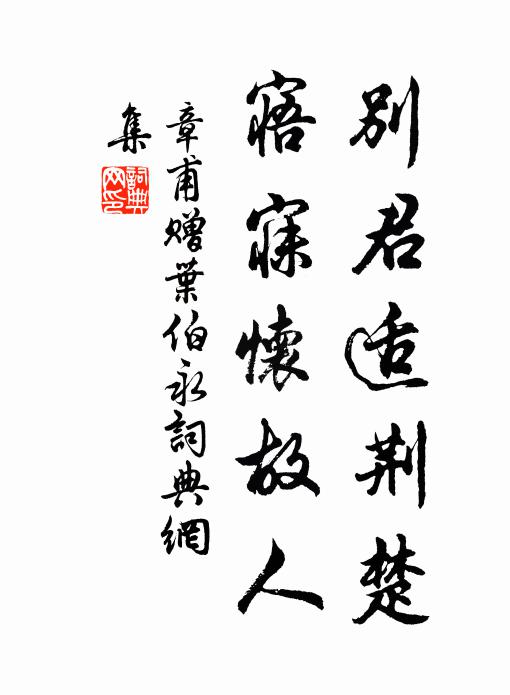 別君适荆楚
寤寐懷故人
章甫贈葉伯永詞典網
集
詞典網印